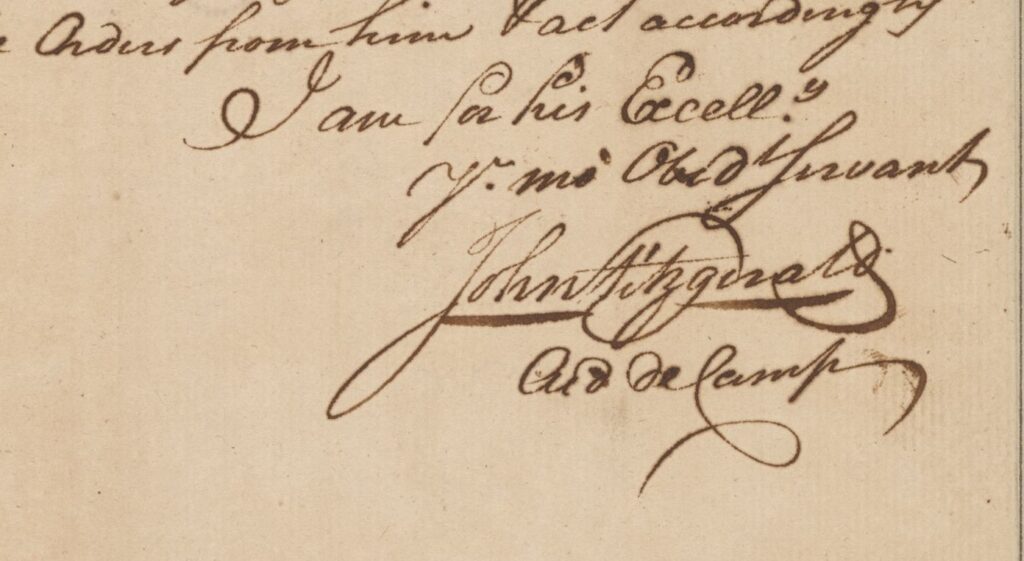 Orders from him & act accordingly
I am for his Excell.y
Yr. mo Obed.t Servant
John Fitzgerald
Aid de Camp